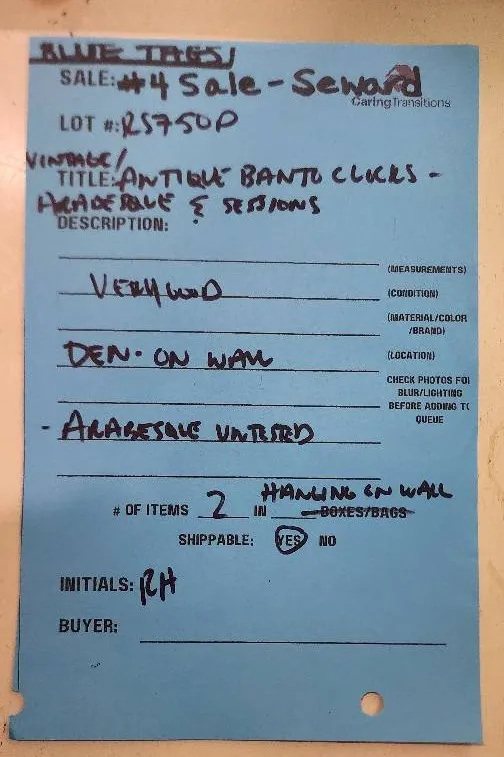 BLUE TAGS/
SALE: #4 Sale - Seward
CaringTransitions
LOT #: RS750P
VINTAGE/
TITLE: ANTIQUE BANTO CLOCKS -
ARABESQUE & SESSIONS
DESCRIPTION:
(MEASUREMENTS)
VERY GOOD (CONDITION)
(MATERIAL/COLOR
/BRAND)
DEN - ON WALL (LOCATION)
CHECK PHOTOS FOR
BLUR/LIGHTING
BEFORE ADDING TO
QUEUE
- ARABESQUE UNTESTED
HANGING ON WALL
# OF ITEMS 2 IN BOXES/BAGS
SHIPPABLE: YES NO
INITIALS: RH
BUYER: